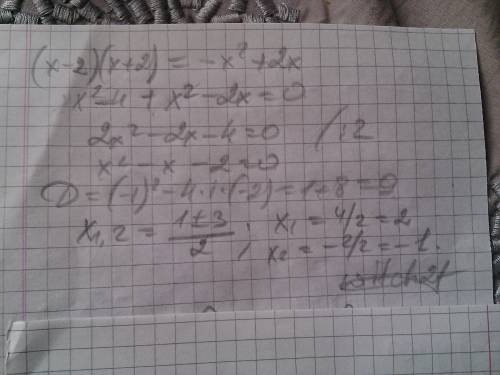 (x-2)(x+2) = -x² + 2x
x²-4 + x² - 2x = 0
2x² - 2x - 4 = 0 /:2
x² - x - 2 = 0
D = (-1)² - 4·1·(-2) = 1+8 = 9
x₁,₂ = (1±3)/2 ; x₁ = 4/2 = 2
, x₂ = -2/2 = -1.